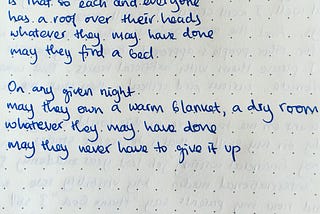 is that so each and everyone
has a roof over their heads
whatever they may have done
may they find a bed.
On any given night
may they own a warm blanket, a dry room
whatever they may have done
may they never have to give it up